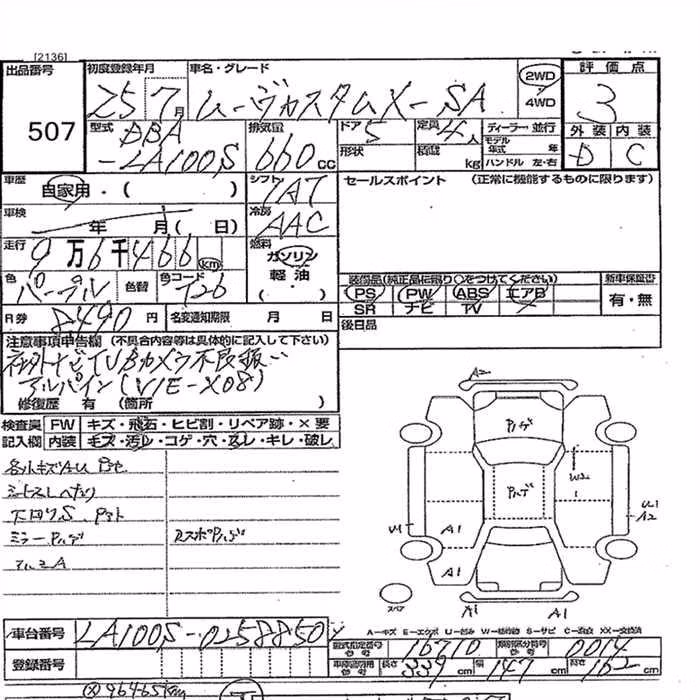 [2136]
出品番号
507
初度登録年月
25 7月
車名・グレード
ムーヴカスタムX-SA
2WD
4WD
評価点
3
外装 内装
D C
型式
DBA
-LA100S
排気量
660 CC
ドア 5
形状
定員 4人
積載 kg
ディーラー・並行
モデル年式 年
ハンドル 左・右
車歴
自家用・( )
シフト
IAT
車検
年 月( 日)
冷房
AAC
走行
9万6千466 km
燃料
ガソリン
軽油
( )
色
パープル
色替
色コード
T26
セールスポイント (正常に機能するものに限ります)
装備品(純正品に限り○をつけてください)
PS PW ABS エアB
SR ナビ TV
新車保証書
有・無
R券
8490円
名変通知期限 月 日
後日品
注意事項申告欄 (不具合内容等は具体的に記入して下さい)
社外ナビTVBカメラ不良扱い
アルパイン(VIE-X08)
修復歴 有 (箇所 )
検査員 FW キズ・飛石・ヒビ割・リペア跡・×要
記入欄 内装 キズ・汚レ・コゲ・穴・スレ・キレ・破レ
A2
W2
A1
A1
U1
A2
スペア
A1
A1
A-キズ E-エクボ U-凹み W-補修跡 S-サビ C-腐食 XX-交換済
車台番号
LA100S-0258850
型式指定番号
16710
類別区分番号
0014
登録番号
長さ 339 cm 幅 147 cm 高さ 162 cm
96465km